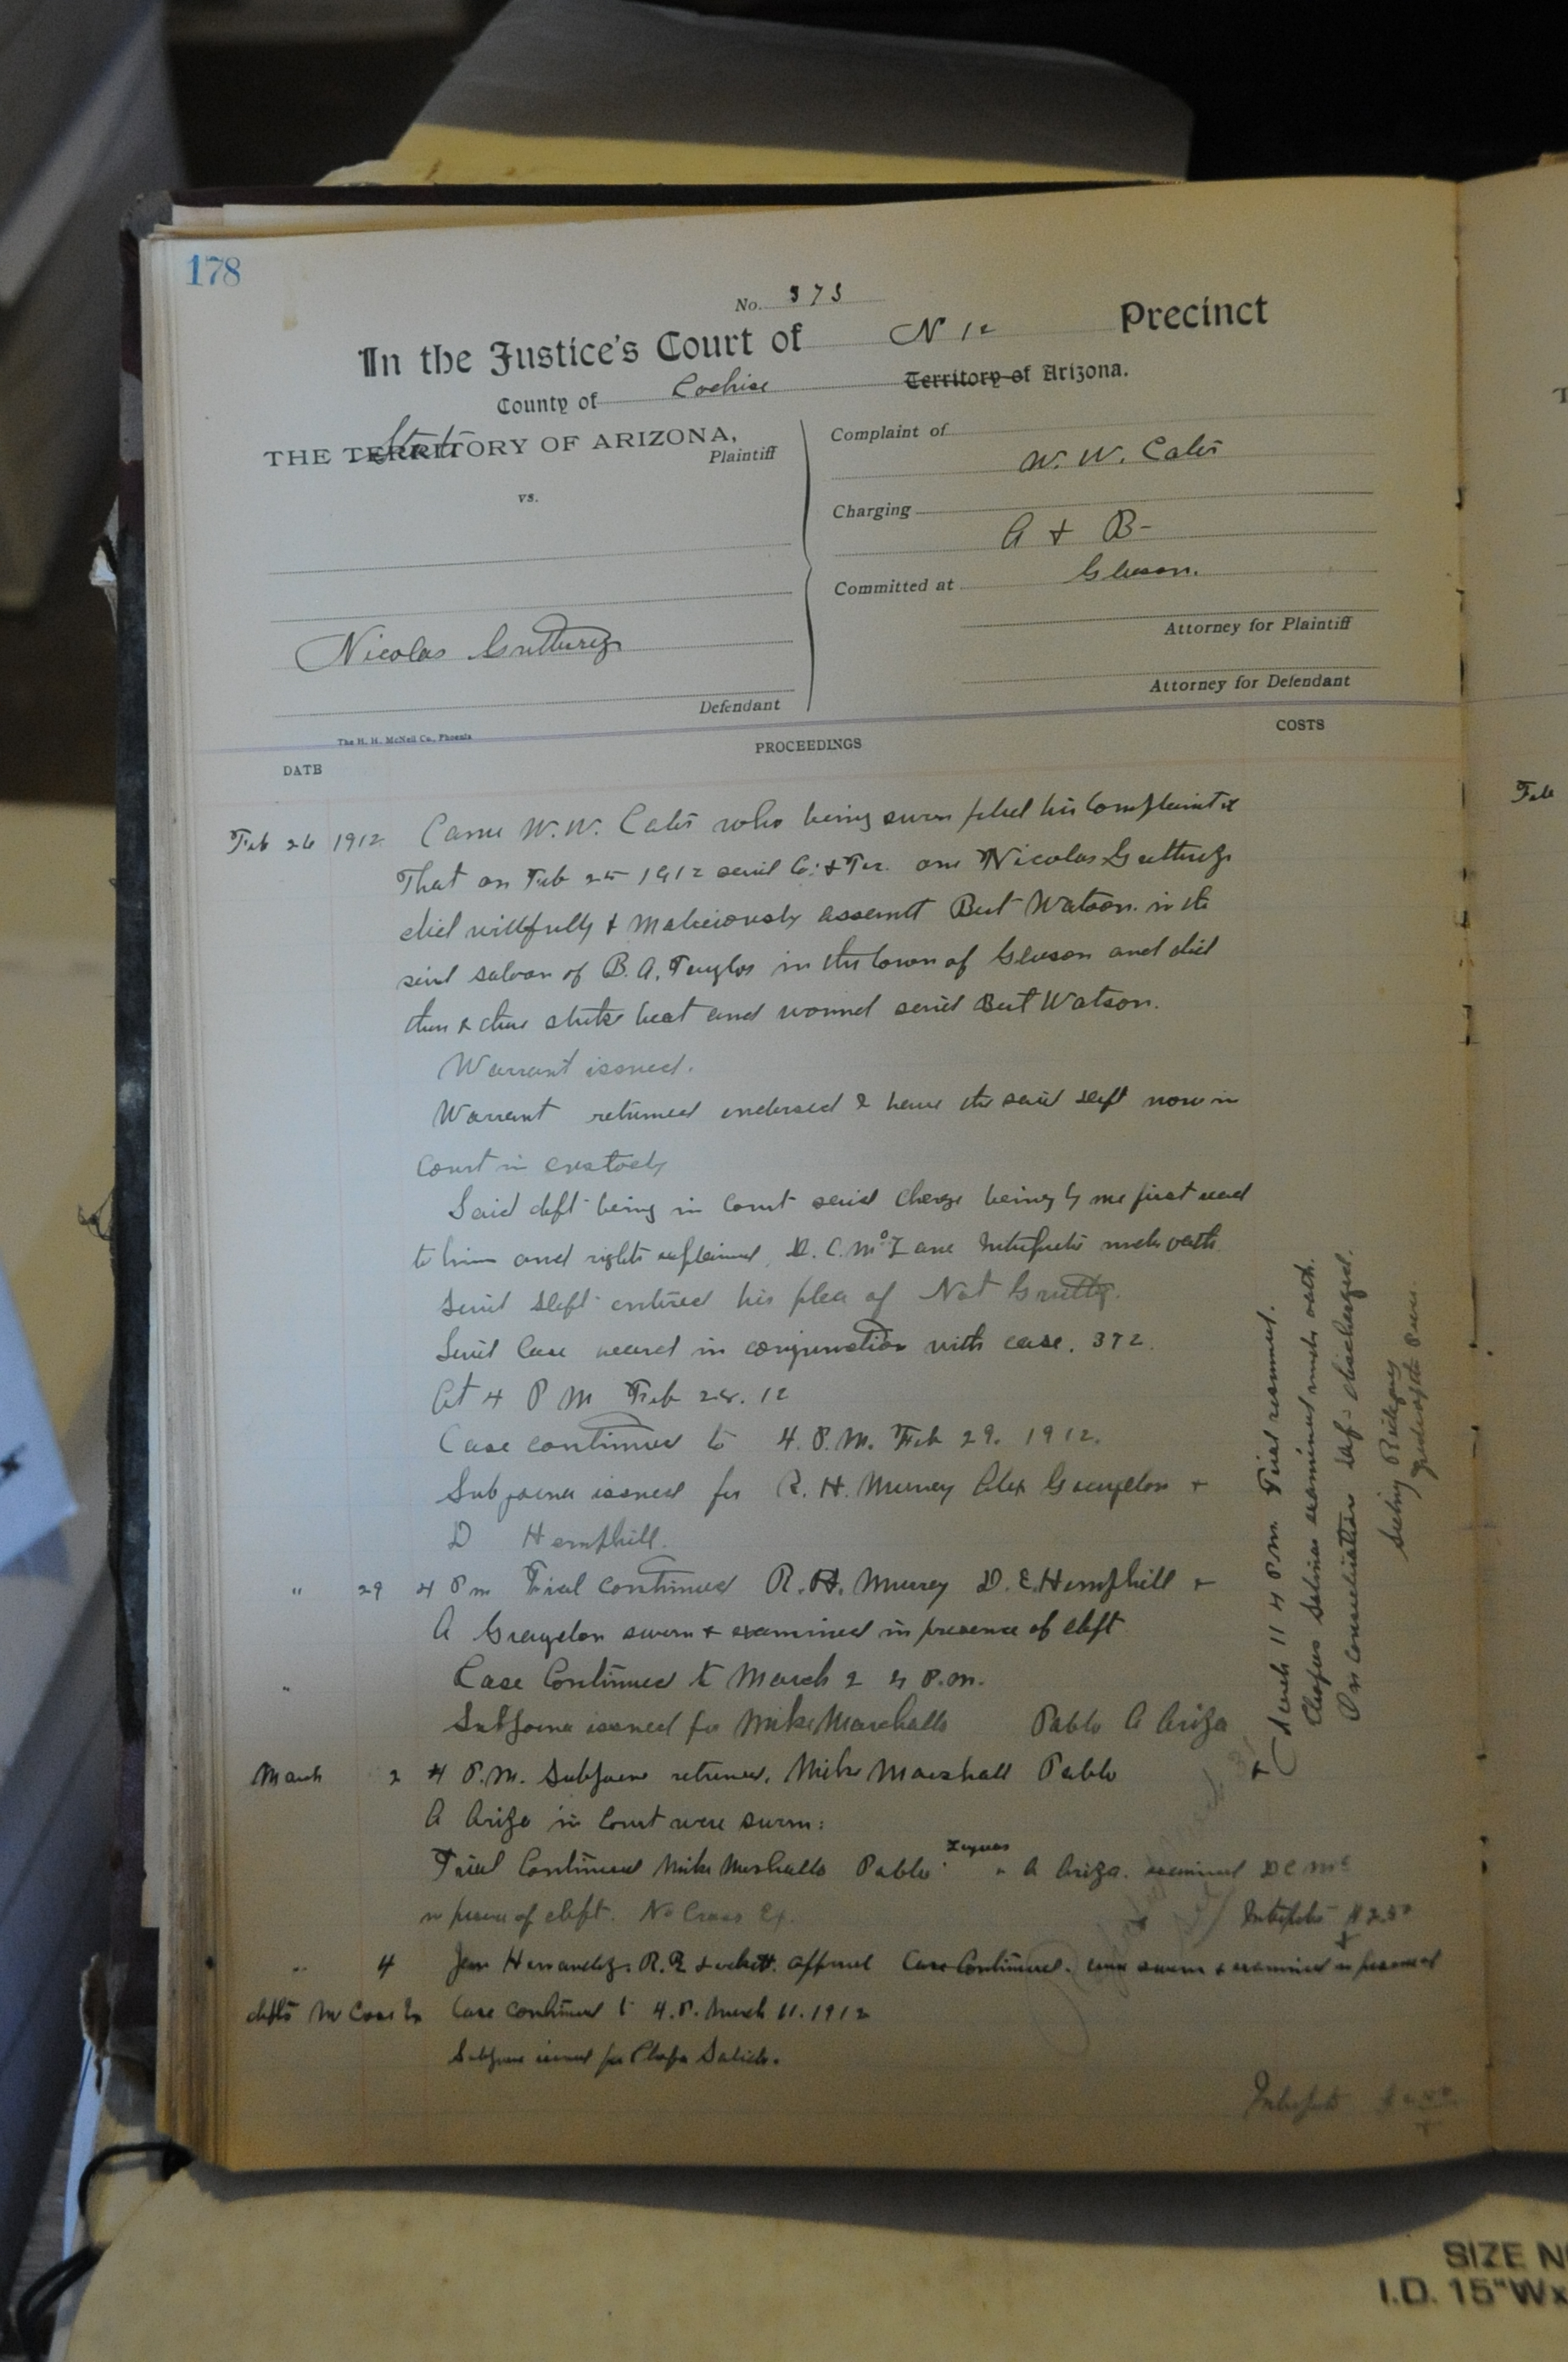 178
No. 373
In the Justice's Court of N 12 Precinct
County of Cochise Territory of Arizona.
THE TERRITORY OF ARIZONA, State
Plaintiff
vs.
Nicolas Gutturez
Defendant
Complaint of
W. W. Cates
Charging
A & B-
Committed at Gleeson.
Attorney for Plaintiff
Attorney for Defendant
The H. H. McNeil Co., Phoenix
DATE PROCEEDINGS COSTS
Feb 26 1912 Came W. W. Cates who being sworn filed his Complaint
That on Feb 25 1912 said Co. & Ter. one Nicolas Gutturez
did willfully & maliciously assault Burt Watson in the
said saloon of B. A. Taylor in the town of Gleeson and did
then & there strike beat and wound said Burt Watson.
Warrant issued.
Warrant returned endorsed I have the said deft now in
Court in custody
Said deft being in Court said Charge being by me first read
to him and rights explained, D. C. McLane Interpreter under oath
Said Deft entered his plea of Not Guilty.
Said Case heard in conjunction with case. 372.
At 4 P M Feb 28. 12
Case continued to 4. P.M. Feb 29. 1912.
Subpoena issued for R. H. Murrey Alex Graydon +
D Hemphill.
" 29 4 Pm Trial continued R. H. Murrey D. E. Hemphill +
A Graydon sworn + examined in presence of deft
" Case Continued to March 2 4 P.m.
Subpoena issued for Mike Marshallo Pablo A Ariza
March 2 4 P.M. Subpoena returned, Mike Marshall Pablo
A Ariza in Court were sworn:
Trial Continued Mike Marshallo Pablo " A Ariza. examined D C Mc
in presence of deft. No Cross Ex. Interpreter $2.50
" 4 Hernandez. R. R. appeared Case Continued. were sworn + examined in presence of
defts No Cross Ex Case continued to 4. P. March 11. 1912
Subpoena issued for
Interpreter
March 11 4 P.M. Trial resumed.
Salinas examined under oath.
On consideration def. discharged.
Justice of the Peace
Feb
SIZE N
I.D. 15"Wx